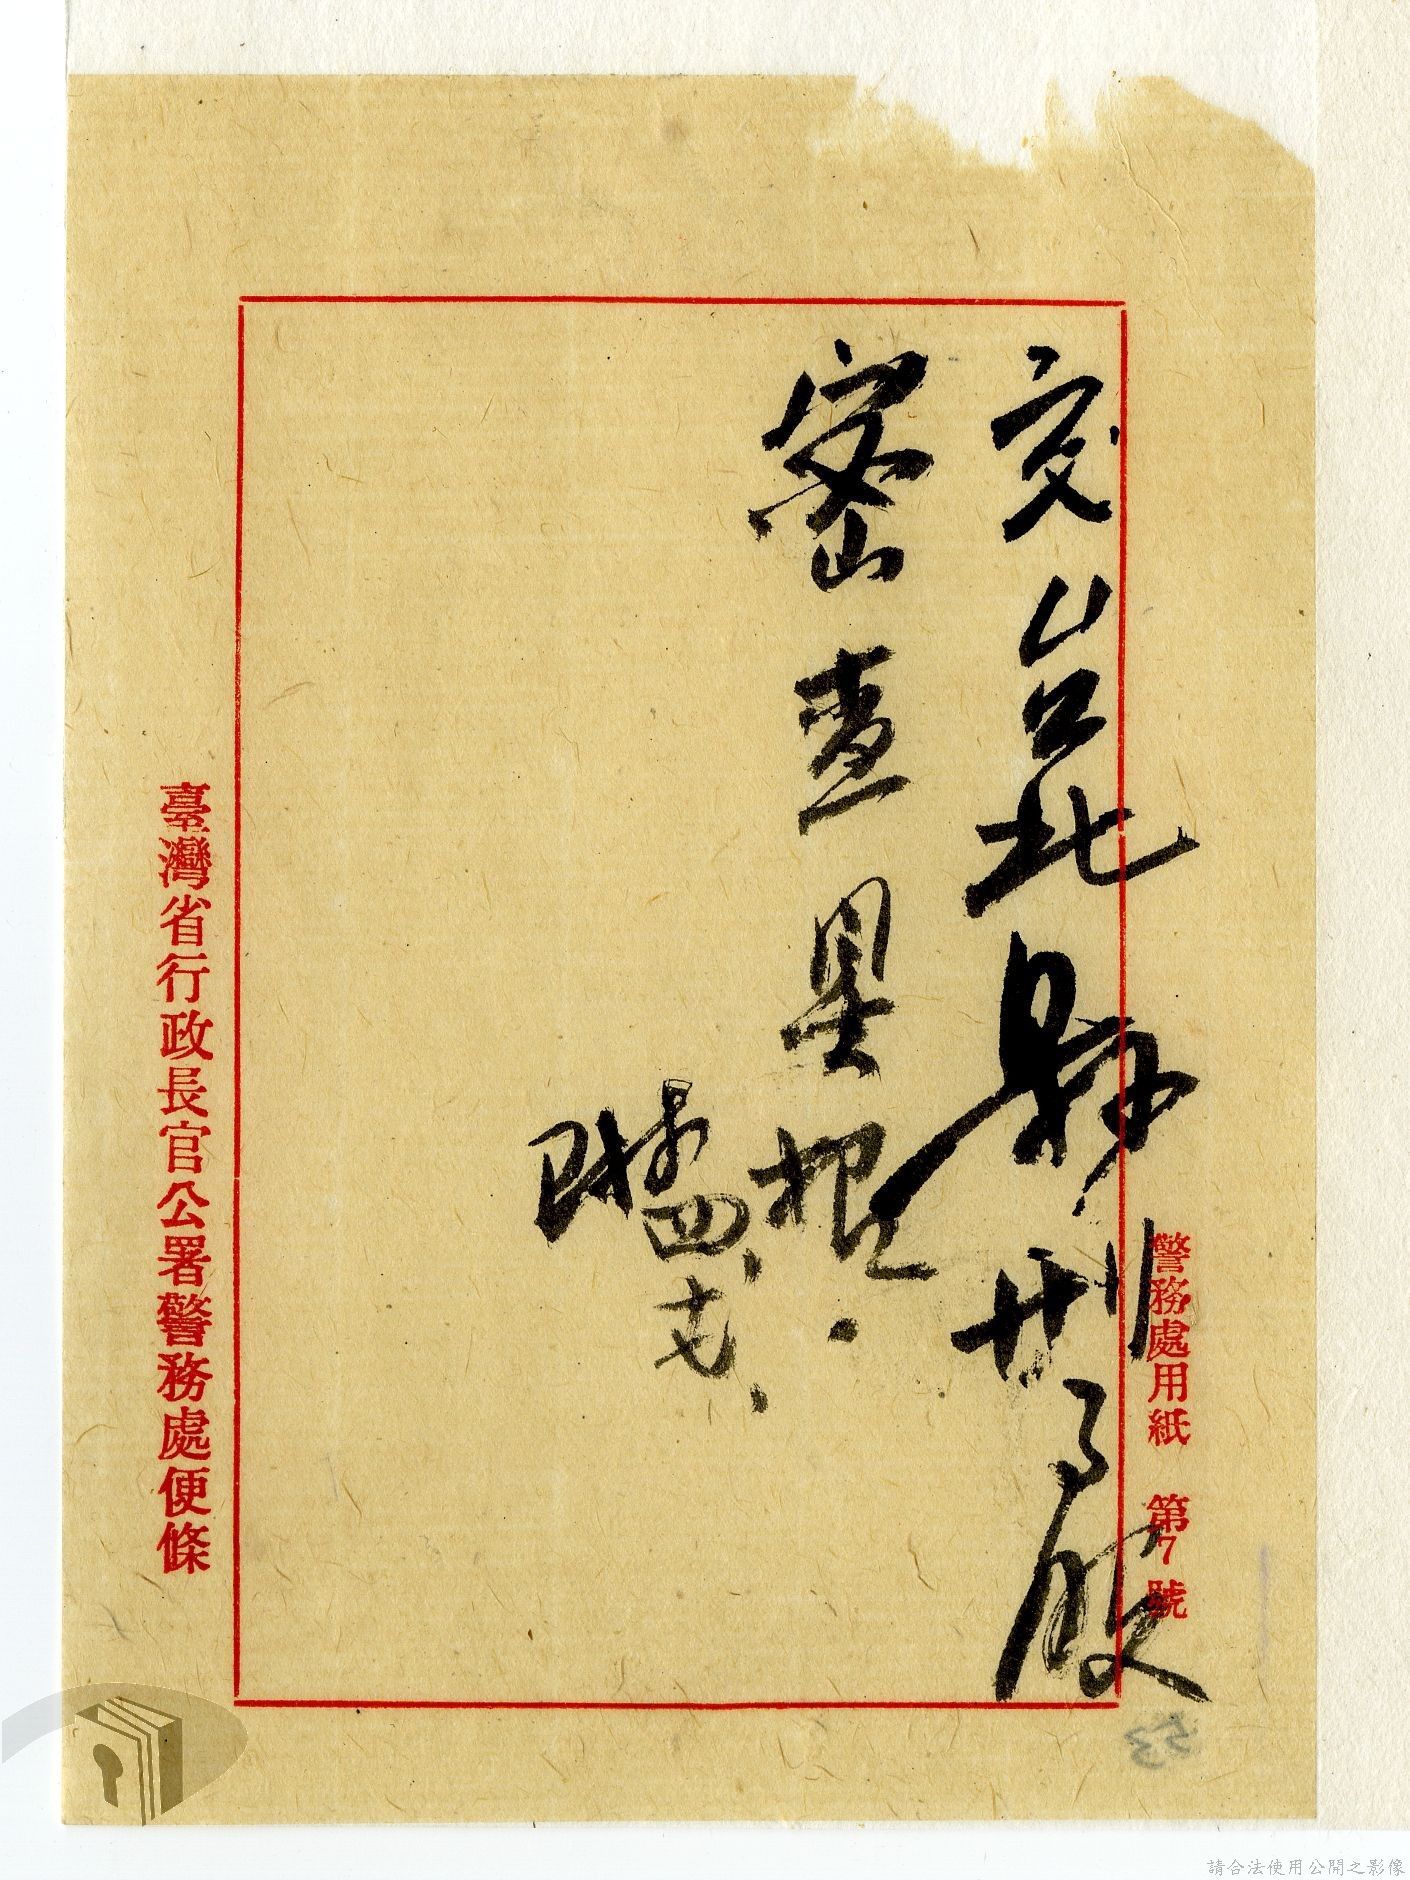 警務處用紙　第7號
交台北縣刑事股
密查具报.
四、七、
臺灣省行政長官公署警務處便條
53
請合法使用公開之影像